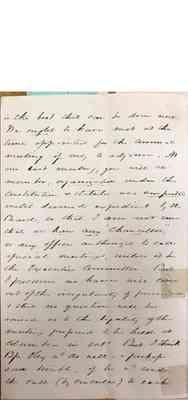 is the best that can be done now.
We ought to have met at the
time appointed for the annual
meeting if only to adjourn. At
our last meeting, you will re
member, organization under the
Constitution & Statutes was
deemed expedient by the
Board, so that I am not sure
that we have any Chancellor,
or any officer authorized to call
special meetings, unless it is
the Executive Committee. But
I presume we have
out of the irregularity if
& that no question will be
raised as to the legality of the
meeting proposed to be held at
Columbia in Oct. But I think
Bp. as well
send
the call (by circular) to each